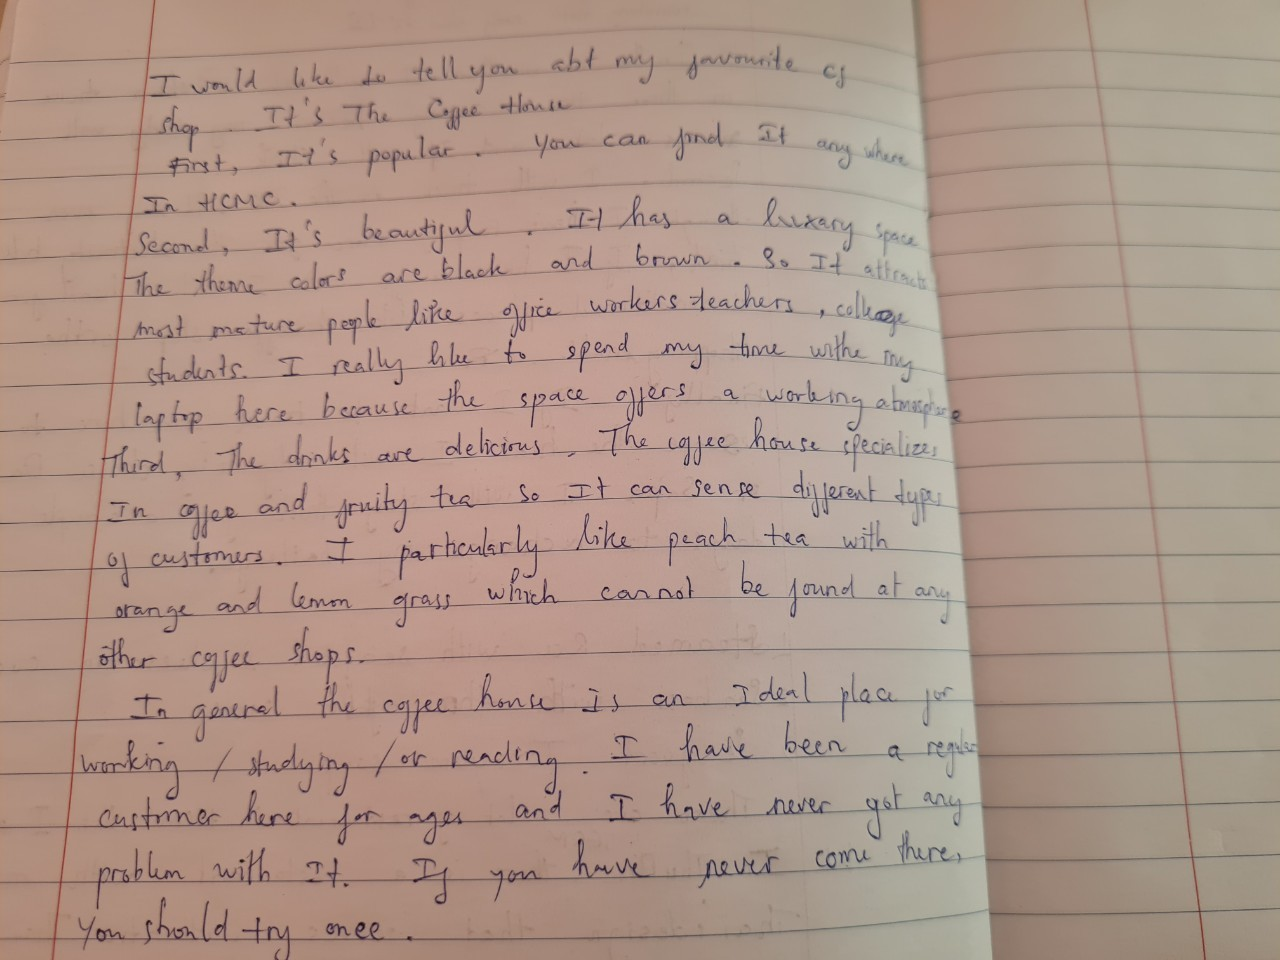 I would like to tell you abt my favourite cf
shop. It's The Coffee House
First, It's popular. You can find It any where
In HCMC.
Second, It's beautiful. It has a luxary space
The theme colors are black and brown. So It attracts
most mature people like office workers teachers, college
students. I really like to spend my time withe my
laptop here because the space offers a working atmosphere
Third, The drinks are delicious. The coffee house specializes
In coffee and fruity tea so It can sense different types
of customers. I particularly like peach tea with
orange and lemon grass which cannot be found at any
other coffee shops.
In general the coffee house Is an Ideal place for
working / studying / or reading. I have been a regular
customer here for ages and I have never got any
problem with It. If you have never come there,
You should try once.